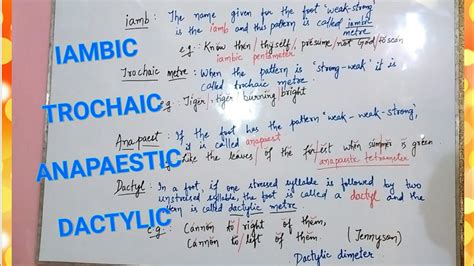 iamb : The name given for the foot 'weak-strong'
is the iamb and this pattern is called iambic
metre
e.g: Know then / thyself / , presume / not God / to scan
iambic pentameter
IAMBIC
Trochaic metre : When the pattern is 'strong-weak' it is
called trochaic metre.
TROCHAIC
e.g: Tiger / , tiger / burning / bright
Anapaest : If the foot has the pattern 'weak-weak-strong',
it is called anapaest
ANAPAESTIC
Like the leaves / of the forest when summer is green
anapaestic tetrameter
Dactyl : In a foot, if one stressed syllable is followed by two
unstressed syllable, the foot is called a dactyl and the
pattern is called dactylic metre.
DACTYLIC
e.g: Cannon to / right of them,
Cannon to / left of them (Tennyson)
Dactylic dimeter.